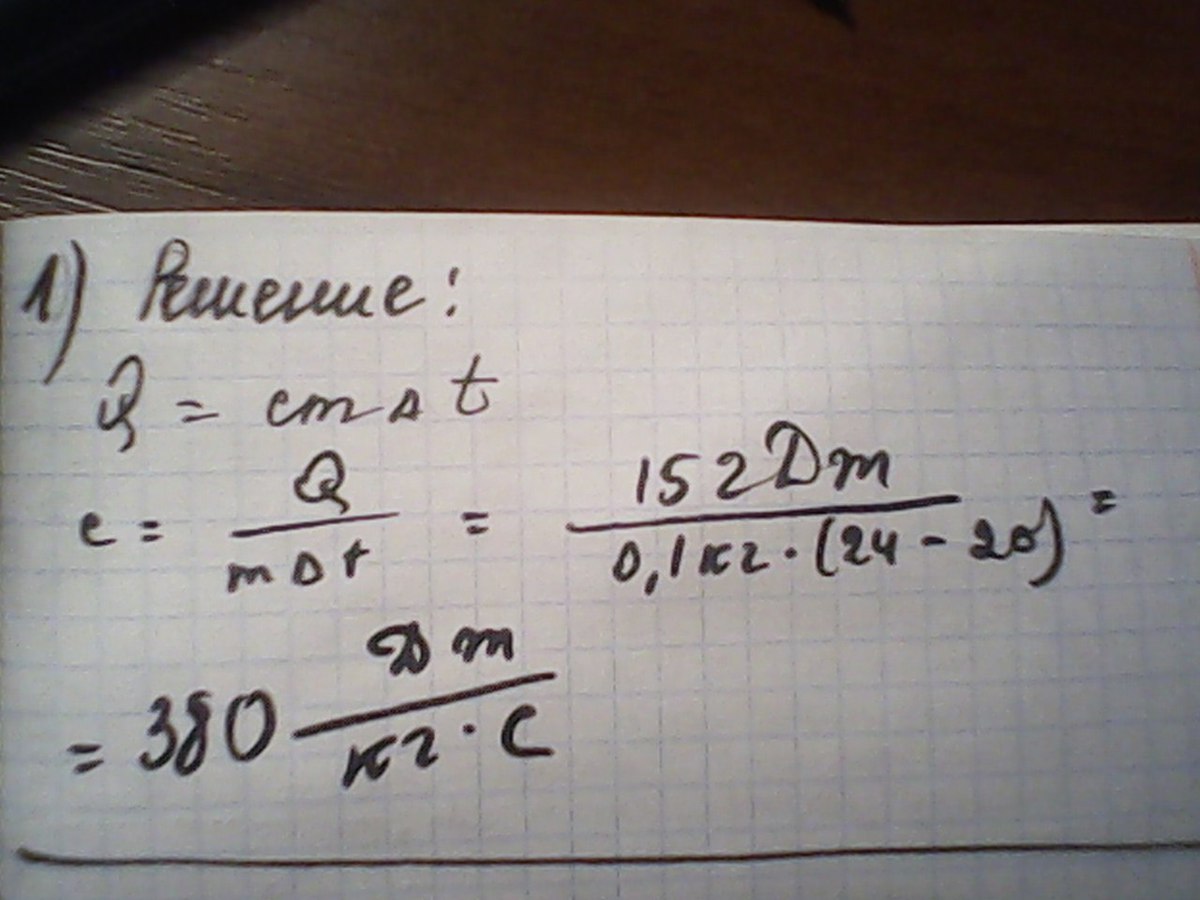 1) Решение:
Q = cm Δ t
c = Q / mΔt = 152 Дж / 0,1 кг · (24 - 20) =
= 380 Дж / кг · С